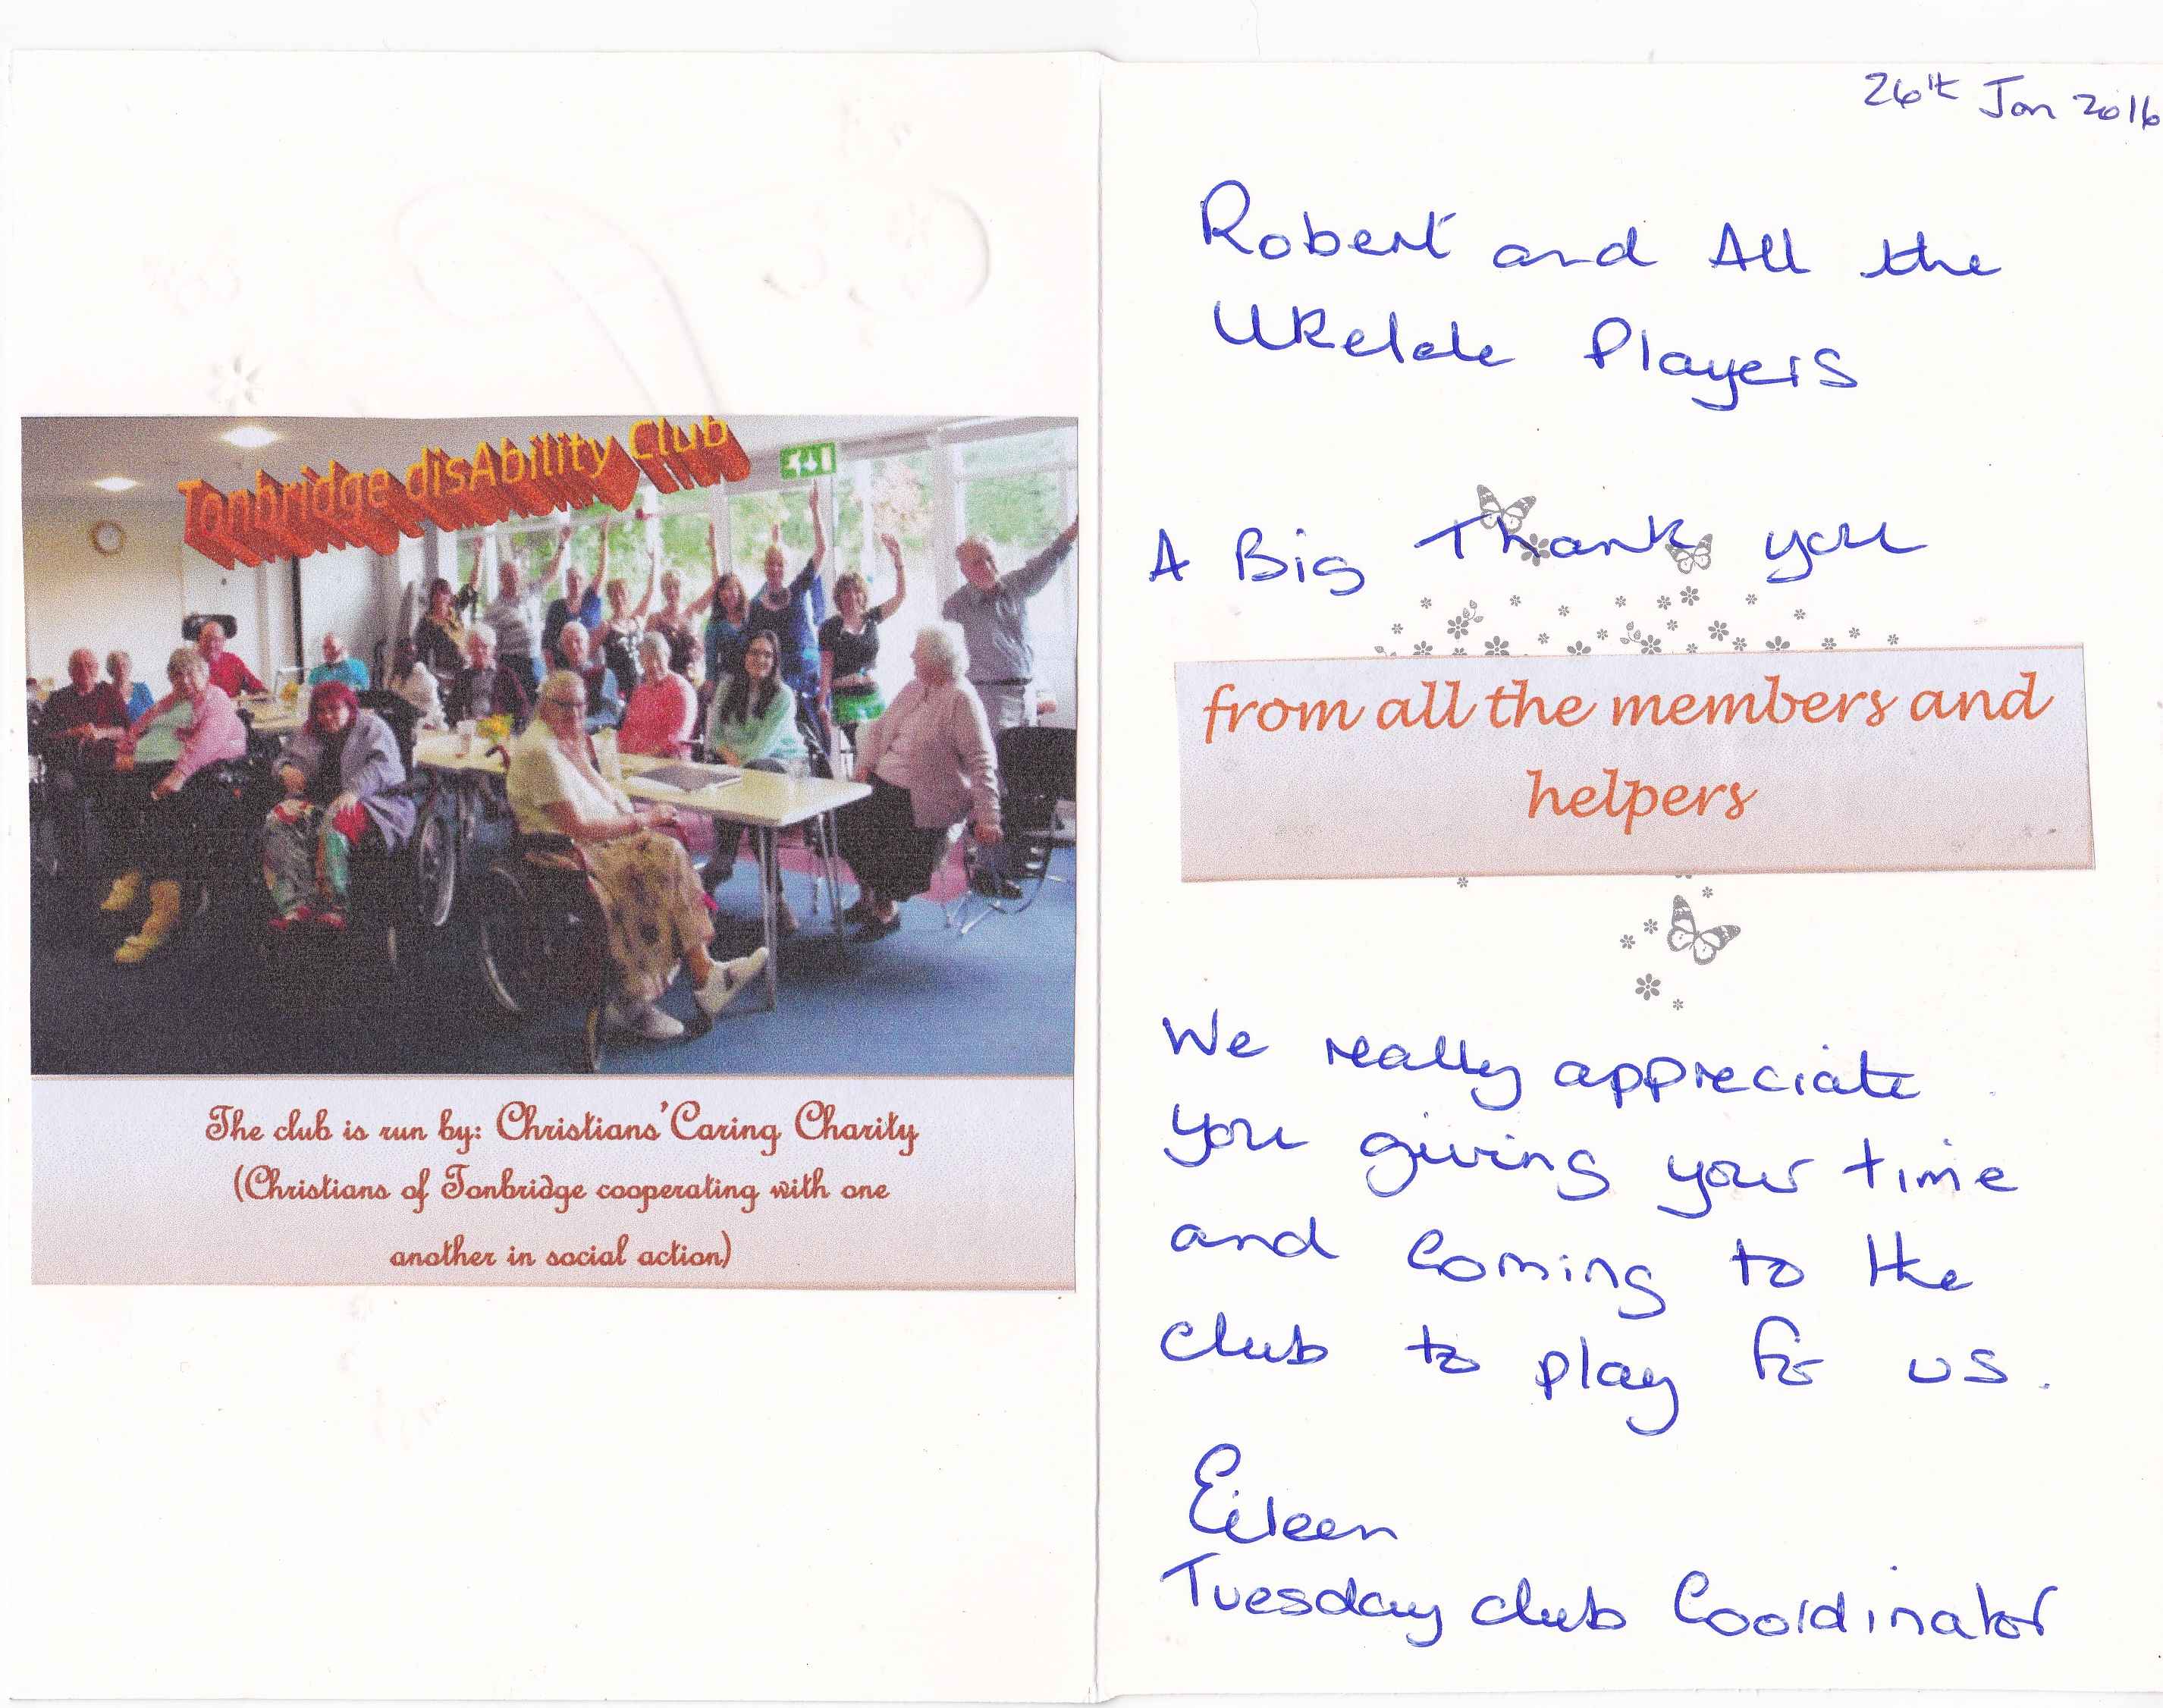 Tonbridge disAbility Club
The club is run by: Christians' Caring Charity
(Christians of Tonbridge cooperating with one
another in social action)
26th Jan 2016
Robert and All the
Ukelele Players
A Big Thank you
from all the members and
helpers
We really appreciate
you giving your time
and Coming to the
club to play for us.
Eileen
Tuesday club Coordinator